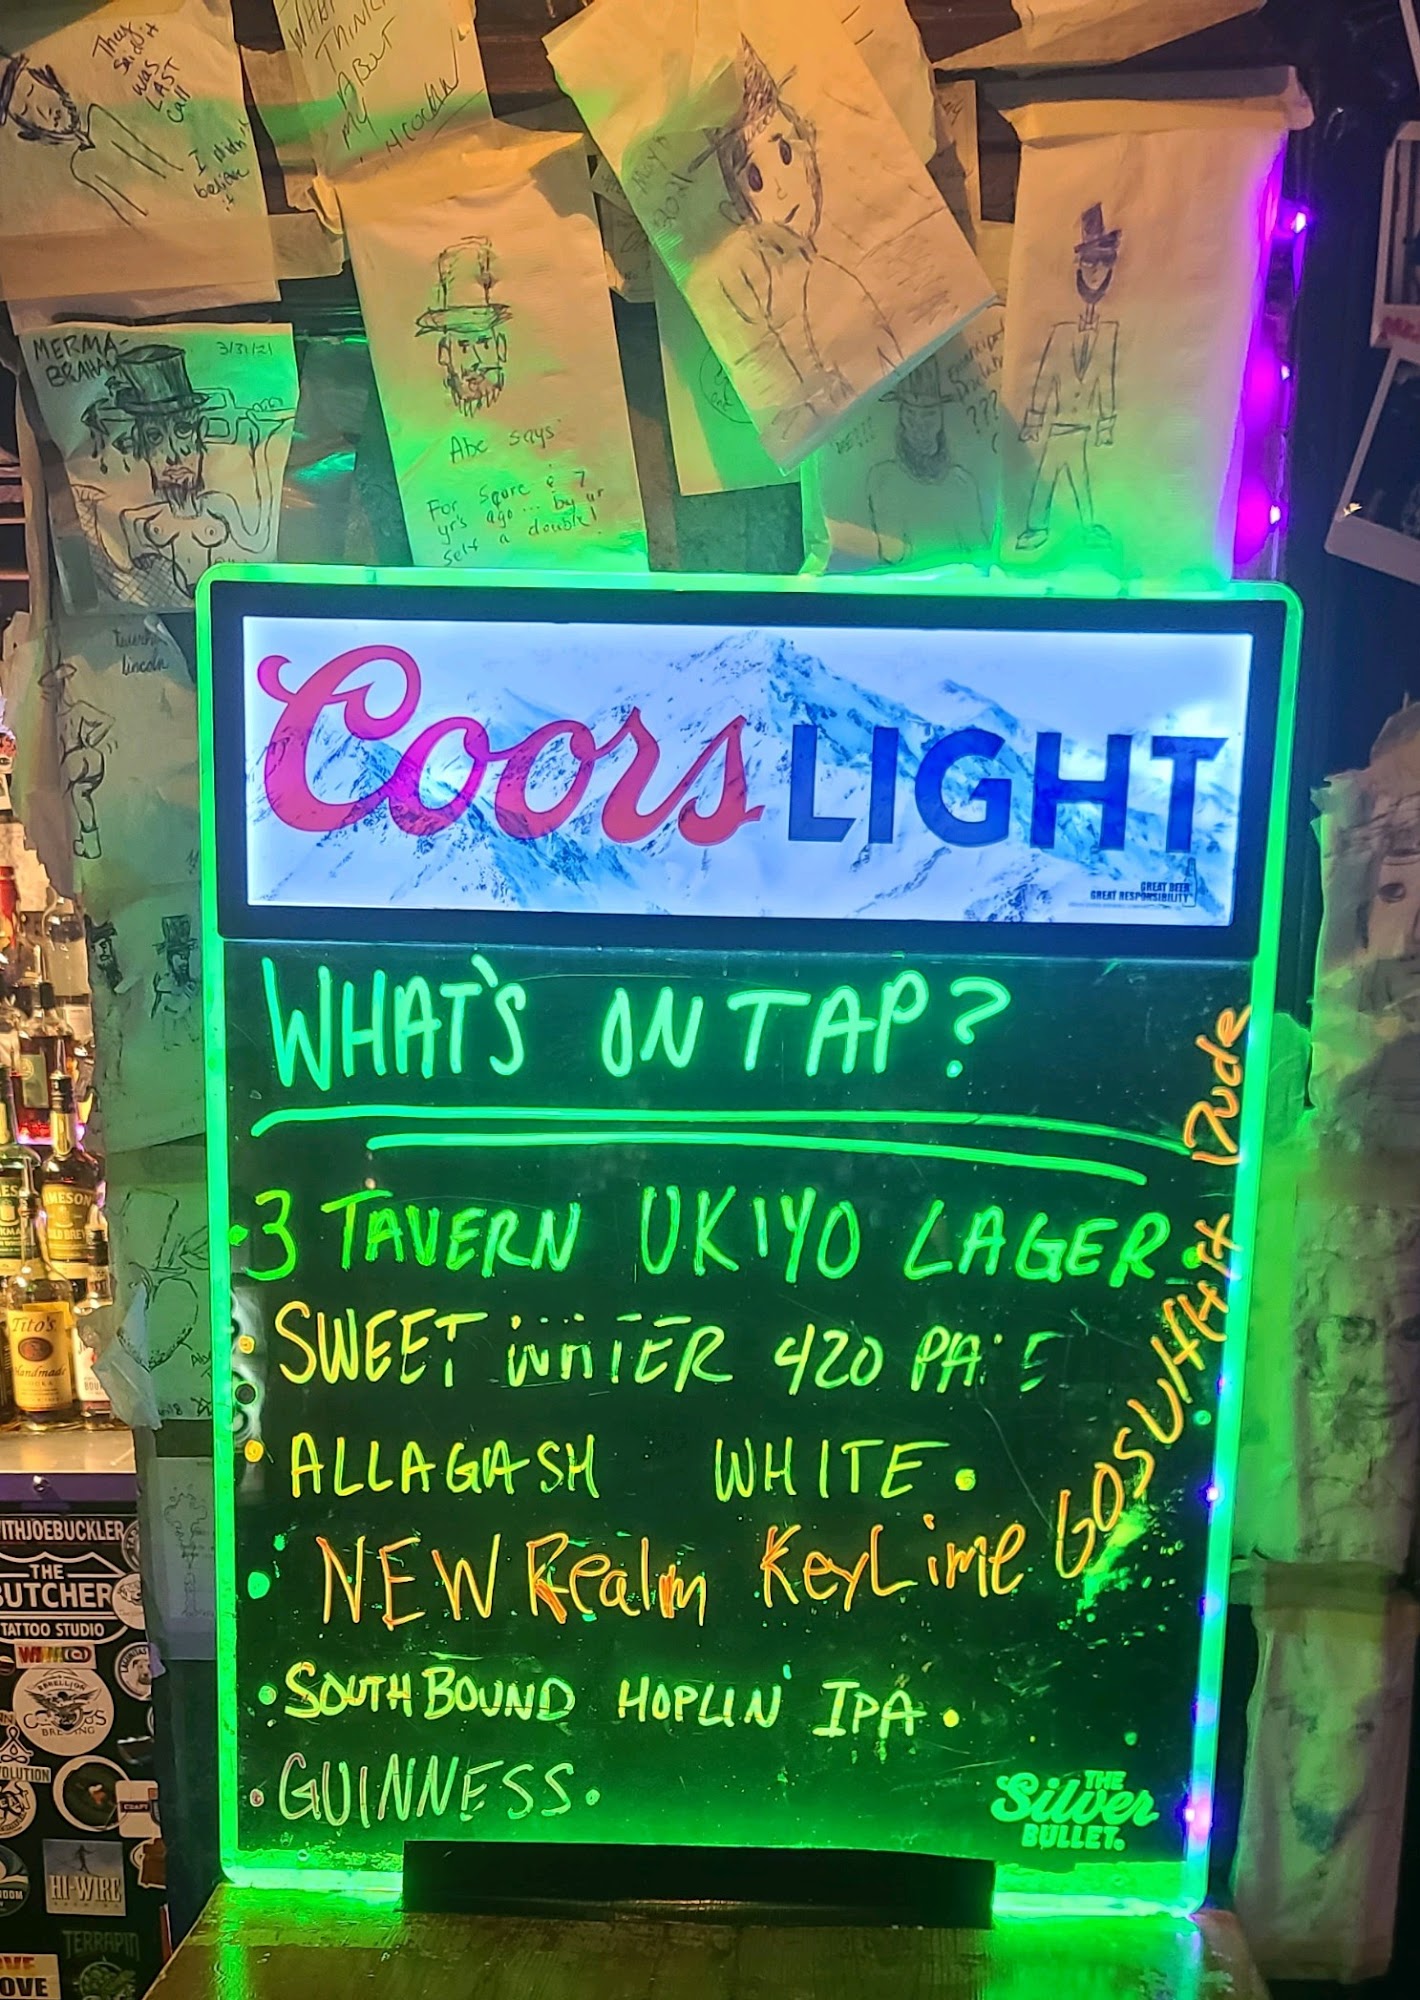 They
said it
was
LAST
call
I didn't
believe
it
WHAT
THINK
ABOUT
MY
MERMA-
BRAHAM
3/31/21
Abe says
For Score & 7
yr's ago... by ur
self a double!
???
lincoln
Coors LIGHT
GREAT BEER
GREAT RESPONSIBILITY
WHAT'S ON TAP?
• 3 TAVERN UKIYO LAGER •
• SWEET WATER 420 PALE
• ALLAGASH WHITE •
• NEW Realm KeyLime GOSUHHH Dude
• SOUTHBOUND HOPLIN' IPA •
• GUINNESS •
THE
Silver
BULLET.
JAMESON
Tito's
Handmade
ITHJOEBUCKLER
THE
BUTCHER
TATTOO STUDIO
REBELLION
HI-WIRE
TERRAPIN
OVE